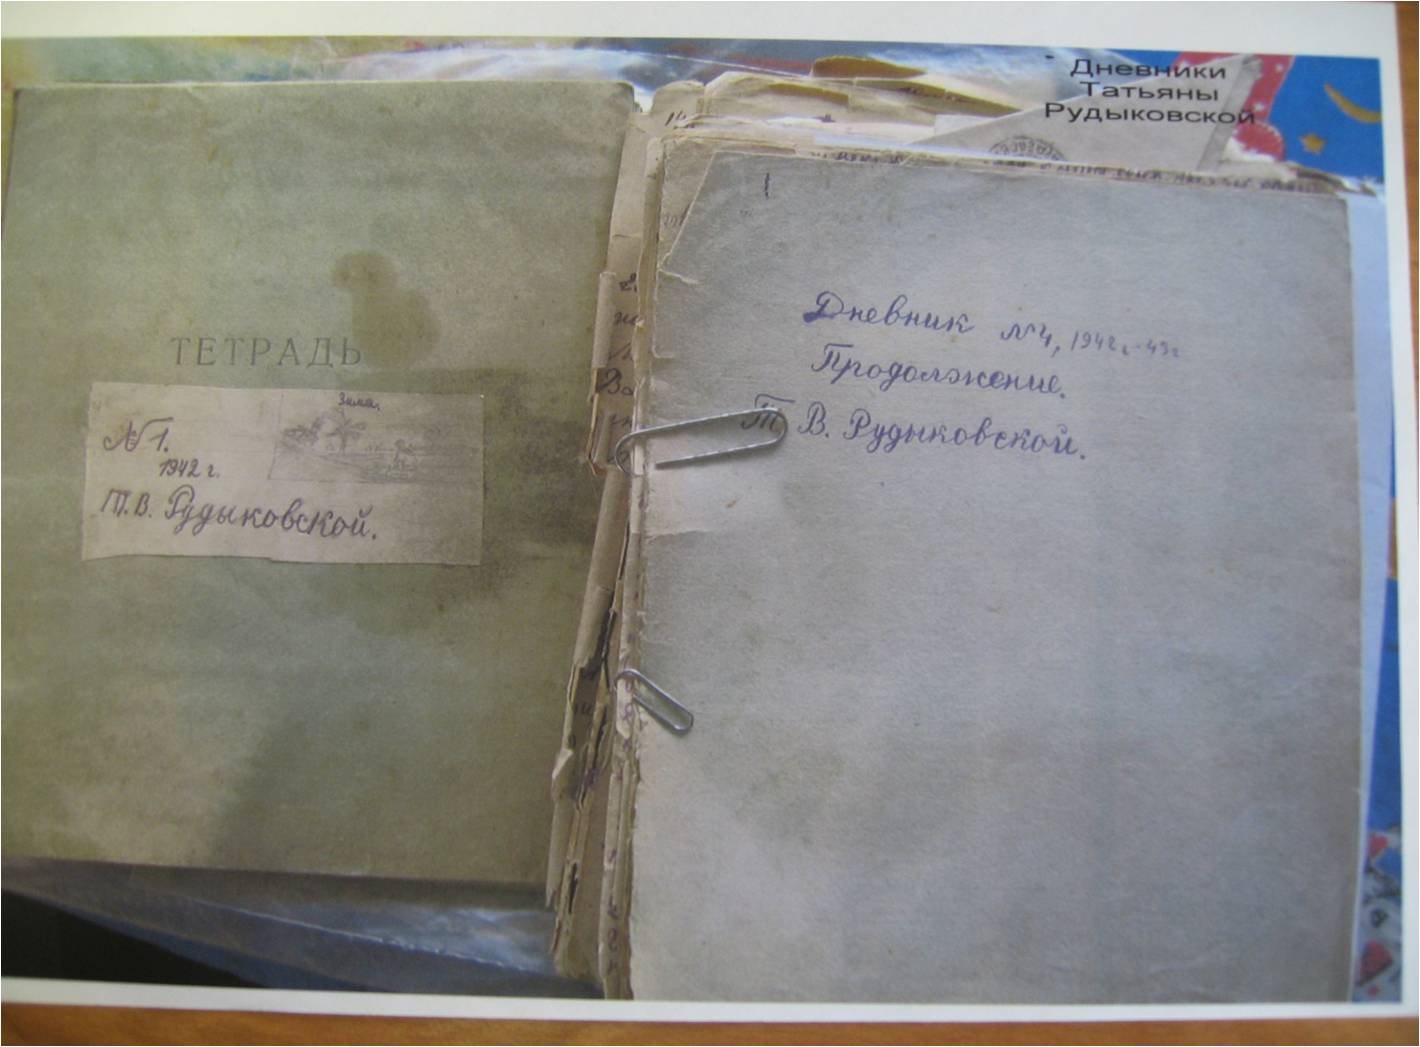 Дневники
Татьяны
Рудыковской
ТЕТРАДЬ
Зима.
№ 1.
1942 г.
Т. В. Рудыковской.
1
Дневник № 4, 1942 г.-43 г
Продолжение.
Т В. Рудыковской.